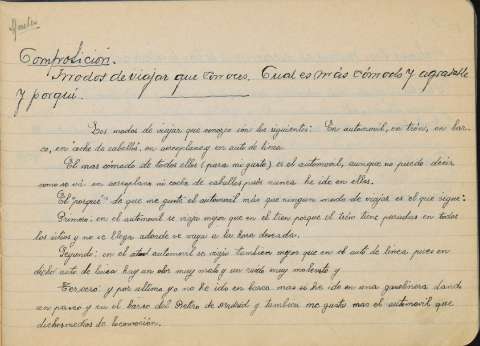 Composición.
Modos de viajar que conoces. Cual es más cómodo y agradable
y porqué.
Los modos de viajar que conozco son los siguientes: En automovil, en trén, en bar-
co, en coche de caballos, en aeroplano y en auto de linea.
El mas cómodo de todos ellos (para mi gusto) es el automovil, aunque no puedo decir
como se vá en aeroplano ni coche de caballos pues nunca he ido en ellos.
El "porqué" de que me guste el automovil más que ningun modo de viajar es el que sigue:
Primero: en el automovil se viaja mejor que en el tren porque el trén tiene paradas en todos
los sitios y no se llega adonde se vaya a la hora deseada.
Segundo: en el automovil se viaja tambien mejor que en el auto de linea pues en
dicho auto de linea hay un olor muy malo y un ruido muy molesto y
Tercero: y por ultimo yo no he ido en barco mas si he ido en una gasolinera dando
un paseo y en el barco del Retiro de Madrid y tambien me gusta mas el automovil que
dichos medios de locomoción.